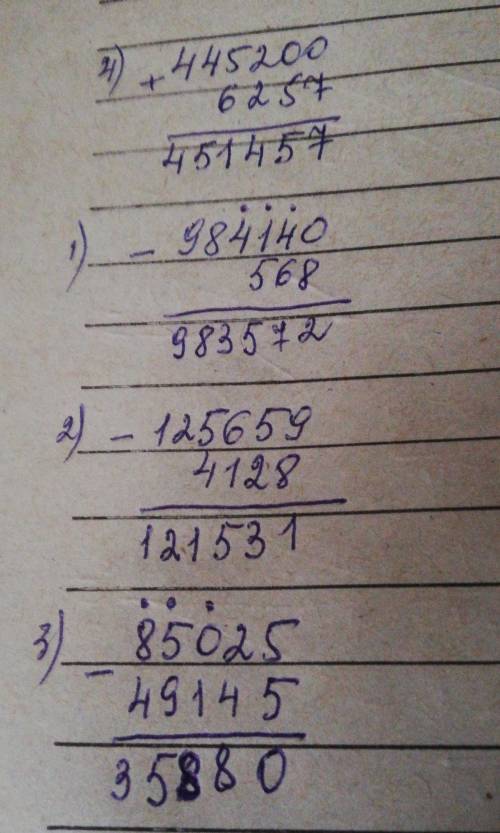 4) + 445200
6257
451457
1) - 984140
568
983572
2) - 125659
4128
121531
3) - 85025
49145
35880